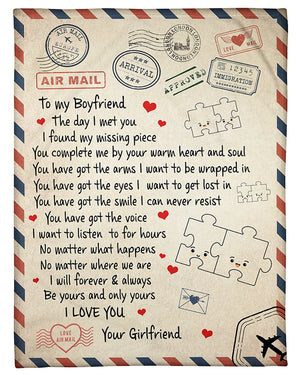 AIR MAIL
ARRIVAL
APPROVED
LOVE MAIL
12345
IMMIGRATION
To my Boyfriend
The day I met you
I found my missing piece
You complete me by your warm heart and soul
You have got the arms I want to be wrapped in
You have got the eyes I want to get lost in
You have got the smile I can never resist
You have got the voice
I want to listen to for hours
No matter what happens
No matter where we are
I will forever & always
Be yours and only yours
I LOVE YOU
Your Girlfriend
LOVE
AIR MAIL